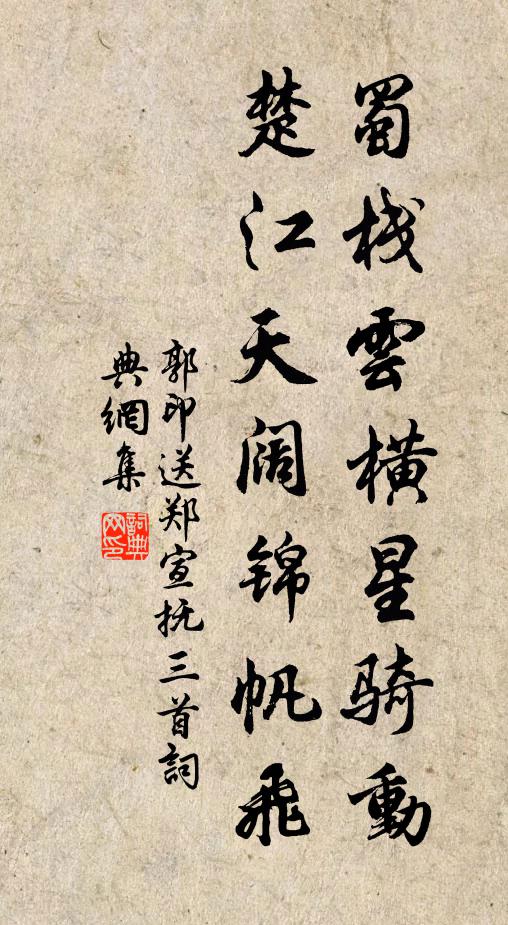 蜀栈雲横星骑動
楚江天阔锦帆飛
郭印送郑宣抚三首詞
典網集
詞典网印